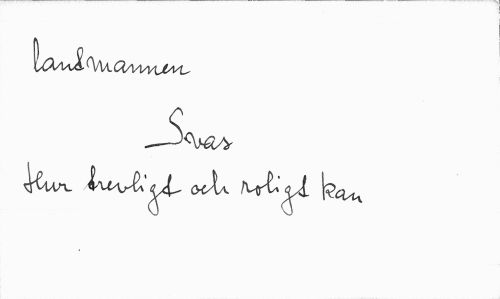 landmannen
Svas
Hur trevligt och roligt kan